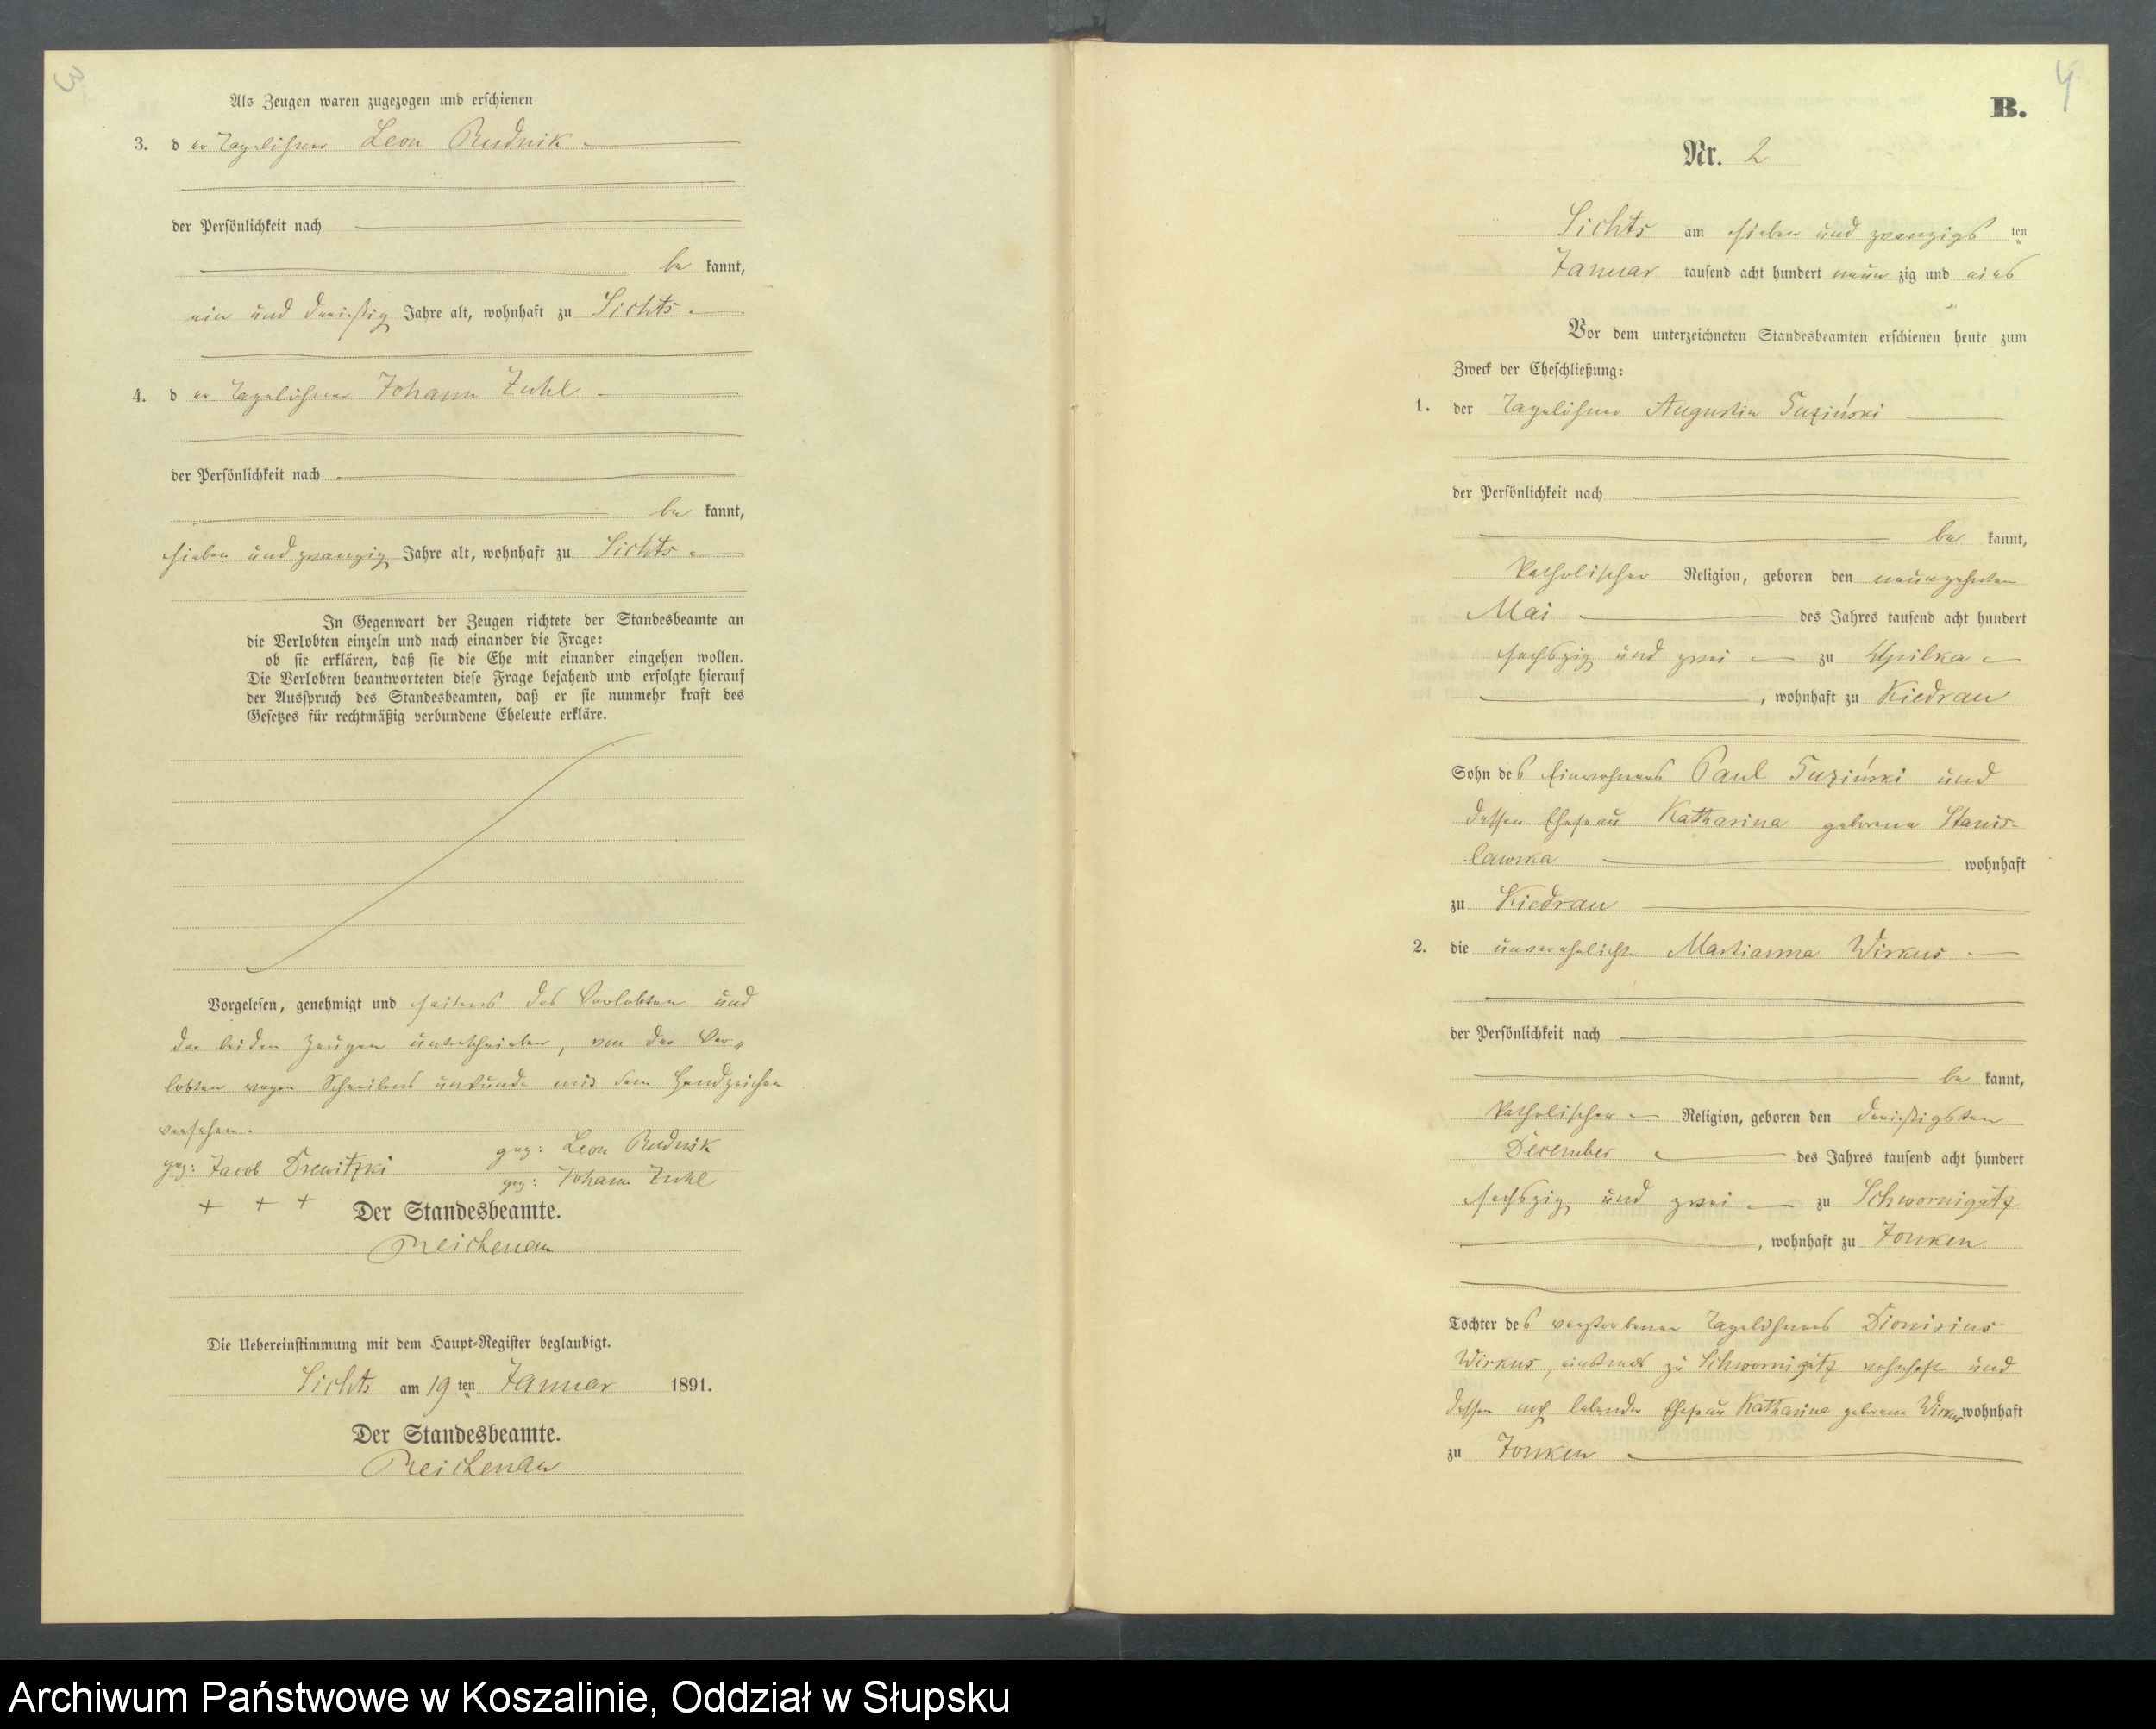 3
Als Zeugen waren zugezogen und erschienen
3. d er Tagelöhner Leon Rudnik
der Persönlichkeit nach
be kannt,
ein und dreißig Jahre alt, wohnhaft zu Lichts
4. d er Tagelöhner Johann Zuhl
der Persönlichkeit nach
be kannt,
sieben und zwanzig Jahre alt, wohnhaft zu Lichts
In Gegenwart der Zeugen richtete der Standesbeamte an
die Verlobten einzeln und nach einander die Frage:
ob sie erklären, daß sie die Ehe mit einander eingehen wollen.
Die Verlobten beantworteten diese Frage bejahend und erfolgte hierauf
der Ausspruch des Standesbeamten, daß er sie nunmehr kraft des
Gesetzes für rechtmäßig verbundene Eheleute erkläre.
Vorgelesen, genehmigt und seitens des Verlobten und
der beiden Zeugen unterschrieben, von der Ver„
lobten wegen Schreibens unkunde mit dem Handzeichen
versehen.
gez: Jacob Drewitzki gez: Leon Rudnik
+ + + gez: Johann Zuhl
Der Standesbeamte.
Reichenau
Die Uebereinstimmung mit dem Haupt-Register beglaubigt.
Lichts am 19 ten Januar 1891.
Der Standesbeamte.
Reichenau
4
B.
Nr. 2
Lichts am sieben und zwanzigs ten
Januar tausend acht hundert neun zig und eins
Vor dem unterzeichneten Standesbeamten erschienen heute zum
Zweck der Eheschließung:
1. der Tagelöhner Augustin
der Persönlichkeit nach
be kannt,
katholischer Religion, geboren den neunzehnten
Mai des Jahres tausend acht hundert
sechszig und zwei zu Upilka
, wohnhaft zu Kiedrau
Sohn des Einwohners Paul und
dessen Ehefrau Katharina geborene Stanis-
lawska wohnhaft
zu Kiedrau
2. die unverehelichte Martianna Wirkus
der Persönlichkeit nach
be kannt,
katholischer Religion, geboren den dreißigsten
December des Jahres tausend acht hundert
sechszig und zwei zu Schwornigatz
, wohnhaft zu Jonken
Tochter des verstorbenen Tagelöhners Dionisius
Wirkus, zu Schwornigatz wohnhaft und
dessen noch lebender Ehefrau Katharina geborene Wirkus wohnhaft
zu Jonken
Archiwum Państwowe w Koszalinie, Oddział w Słupsku